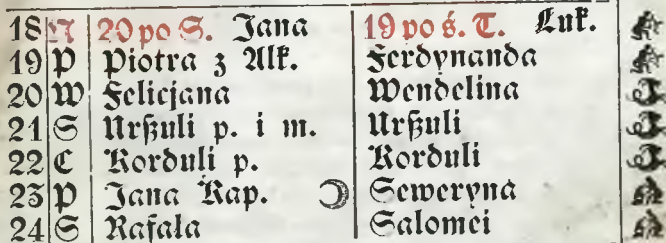 18 N 20 po S. Jana 19 po ś. T. Łuk.
19 P Piotra z Alk. Ferdynanda
20 W Felicjana Wendelina
21 S Urßuli p. i m. Urßuli
22 C Korduli p. Korduli
23 P Jana Kap. ☽ Seweryna
24 S Rafała Salomei